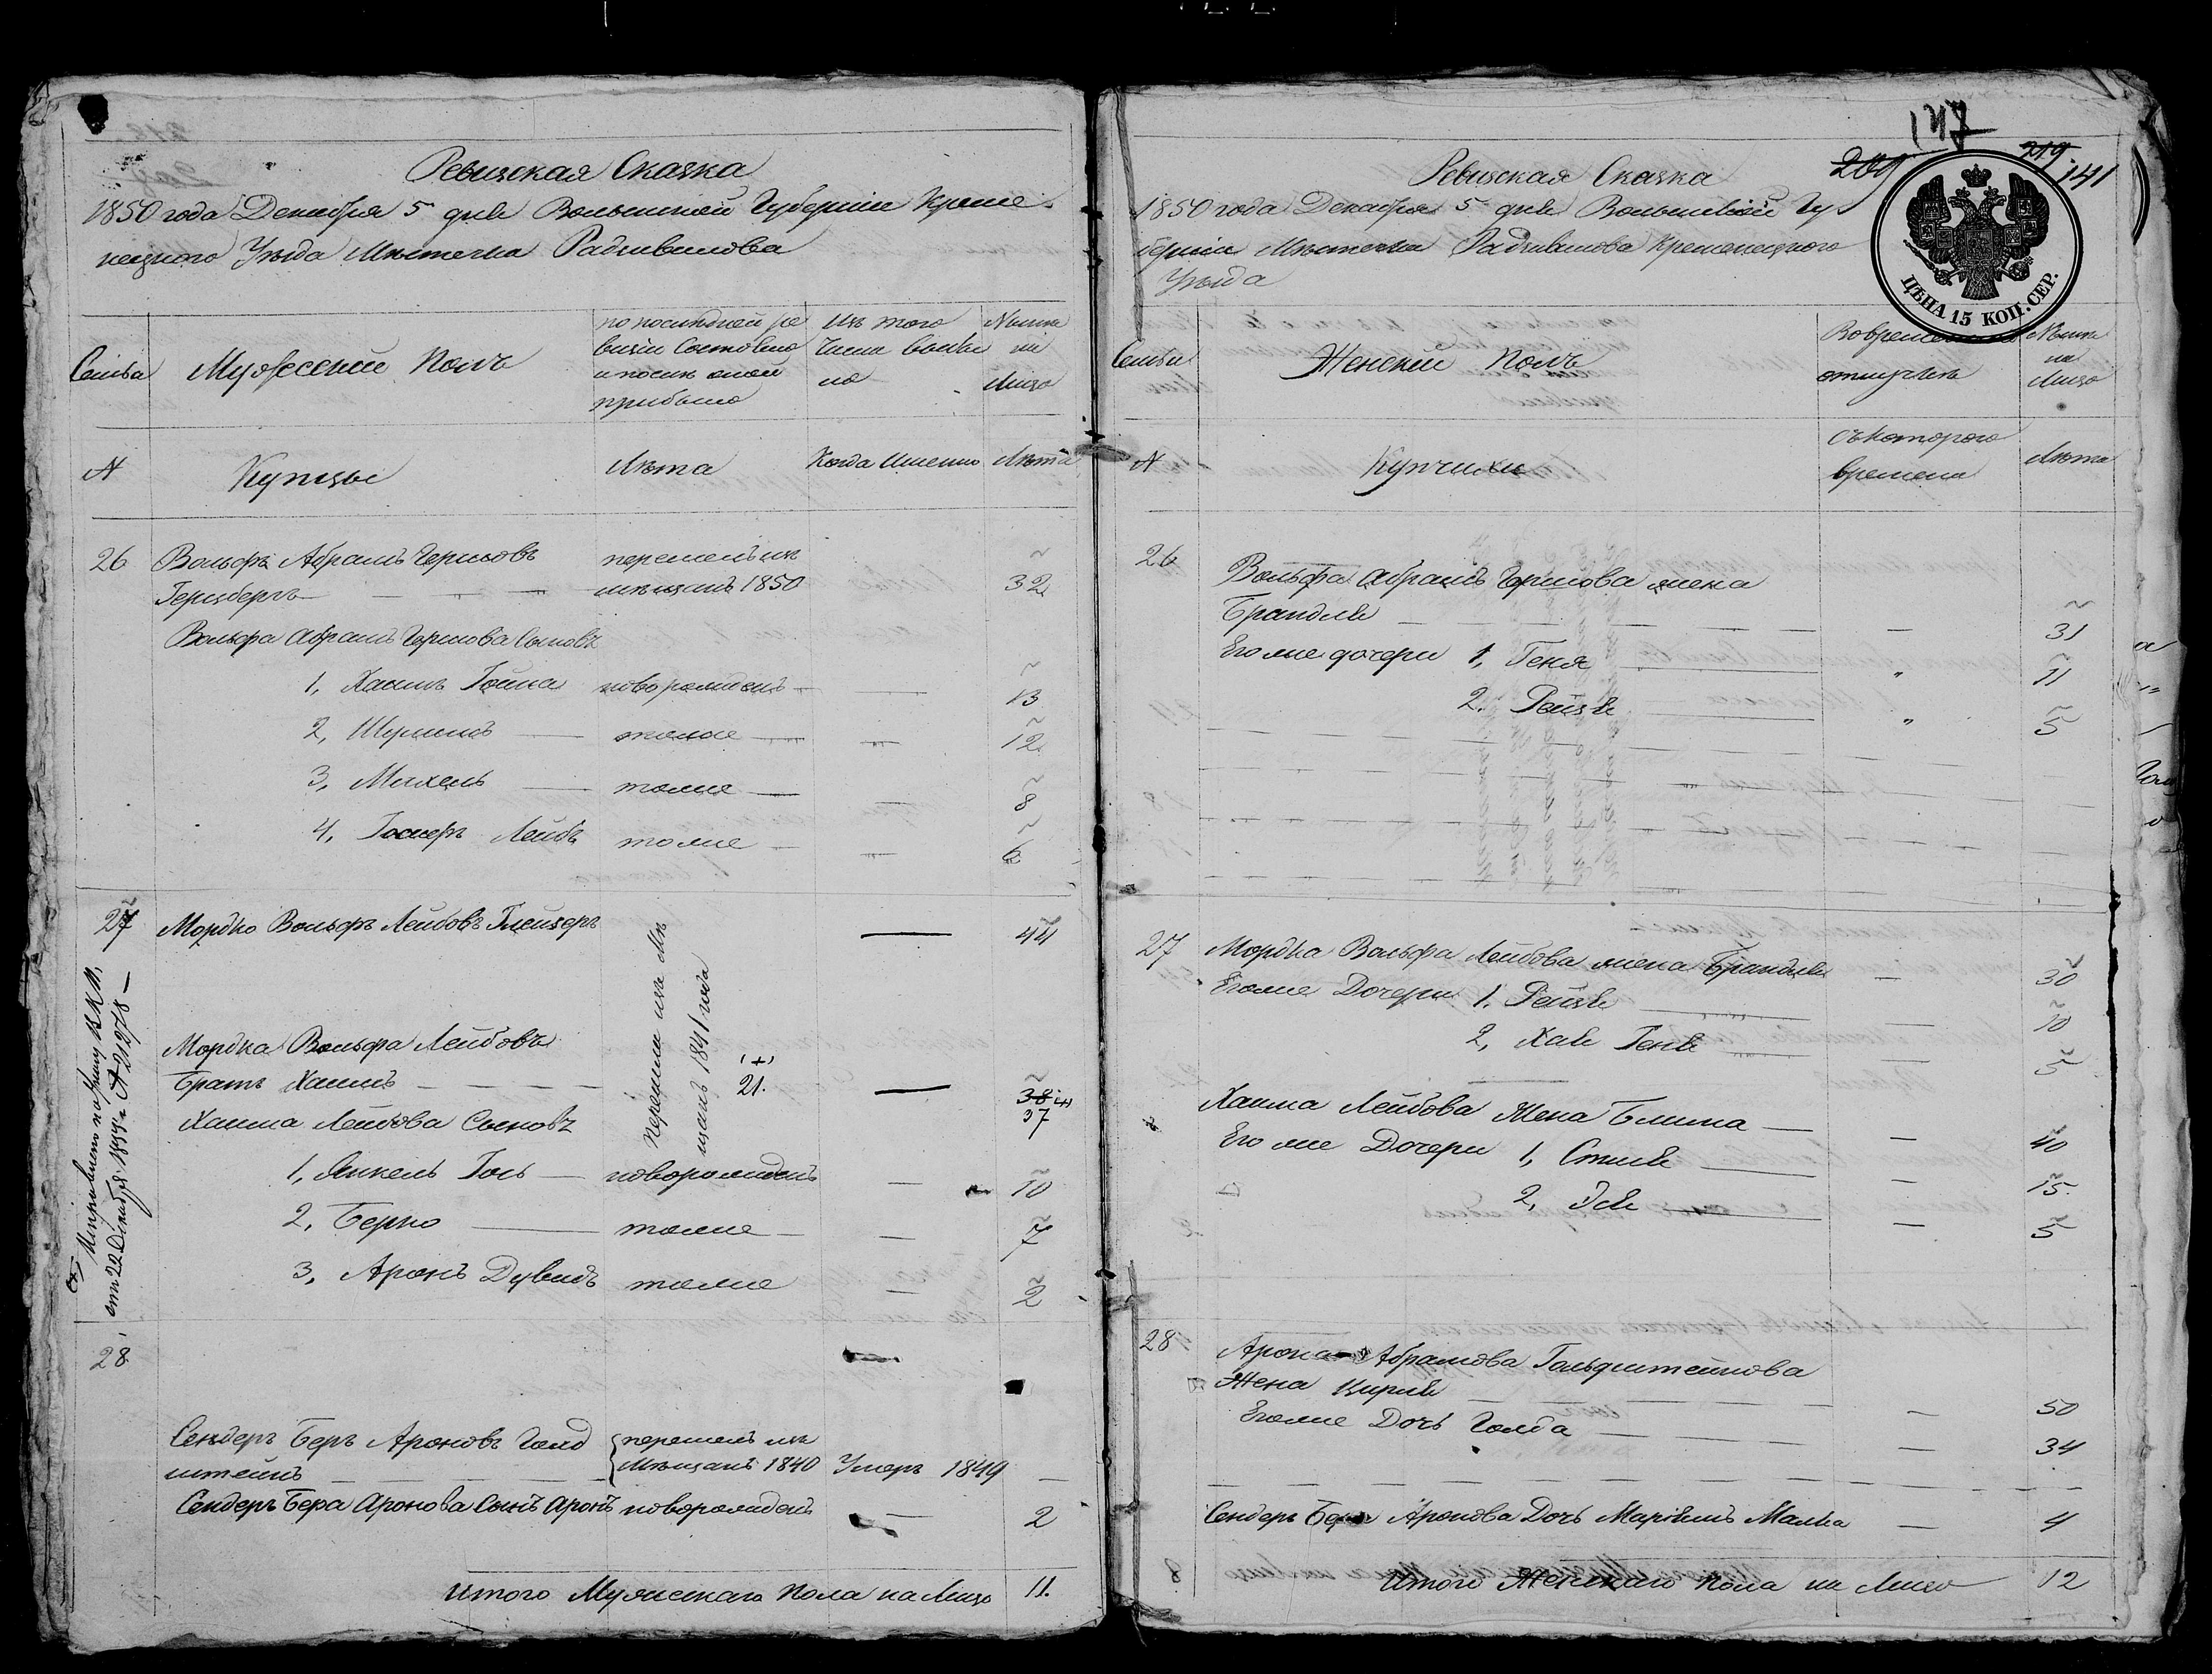 Ревизская Сказка
1850 года Декабря 5 дня Волынской Губернии Креме
нецкого Уезда Мѣстечка Радзивилова
Семьи
Мужеский Полъ
по последней ре
визіи Состояло
и после оной
прибыло
Изъ того
числа выбы
ло
Ныне
на
Лицо
№
Купцы
Лѣта
Когда Именно
Лѣта
26
Вольфъ Абрамъ Гершовъ
Герцбергъ
перешелъ изъ
мѣщанъ 1850
32
Вольфа Абрамъ Гершова Сыновъ
1, Хаимъ Гойна новорожденъ
13
2, Шулимъ тоже
12
3, Михель тоже
8
4, Лейбъ тоже
6
27
Мордко Вольфъ Лейбовъ Глейзеръ
44
Перешли изъ Мѣ
щанъ 1841 года
Мордка Вольфа Лейбовъ
Братъ Хаимъ
(+)
21.
38 (+)
37
Хаима Лейбова Сыновъ
1, Янкель Гось новорожденъ
10
2, Берко тоже
7
3, Аронъ Дувидъ тоже
2
от 22 Декабря № 21978
28
Сендеръ Беръ Ароновъ Голд
штейнъ
перешелъ изъ
Мѣщанъ 1840
Умеръ 1849
Сендеръ Бера Аронова Сынъ Аронъ новорожденъ
2
Итого Мужескаго Пола на Лицо 11.
147
209
219
141
ЦѢНА 15 КОП. СЕР.
Ревизская Сказка
1850 года Декабря 5 дня Волынской Гу
берніи Мѣстечка Радзивилова Кременецкого
Уезда
Семьи
Женский Полъ
Во временной
отлучкѣ
Ныне
на
Лицо
№
Купчихи
Съ которого
времени
Лѣта
26
Вольфа Абрамъ Гершова жена
Брандля
31
Его же дочери 1, Геня
11
2. Рейзя
5
27
Мордка Вольфа Лейбова жена Брандля
30
Его же Дочери 1. Рейзя
10
2, Хая Геня
5
Хаима Лейбова Жена Блима
40
Его же Дочери 1,
15.
2,
5
28
Арона Абрамова Гольдштейнова
Жена Цирля
50
Его же Дочь Голда
34
Сендеръ Бера Аронова Дочь Маріямъ Малка
4
Итого Женскаго пола на Лицо 12